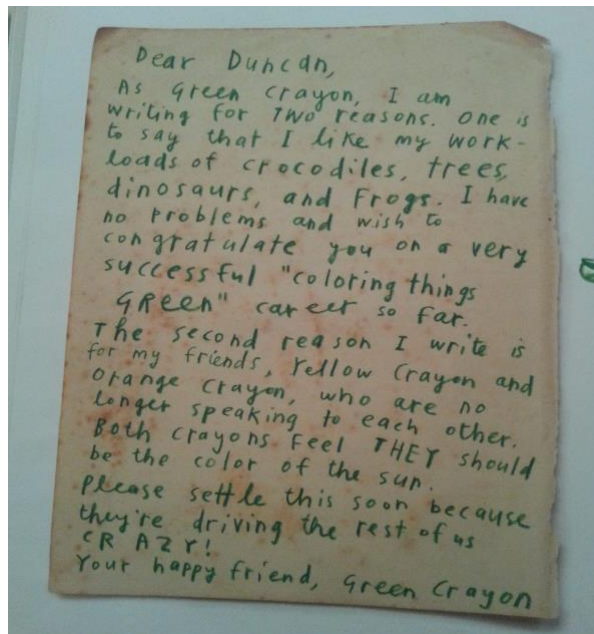 Dear Duncan,
As Green crayon, I am
writing for TWO reasons. one is
to say that I like my work-
loads of crocodiles, trees,
dinosaurs, and frogs. I have
no problems and wish to
congratulate you on a very
successful "coloring things
GReen" career so far.
The second reason I write is
for my friends, Yellow Crayon and
Orange Crayon, who are no
longer speaking to each other.
Both crayons feel THEY should
be the color of the sun.
please settle this soon because
they're driving the rest of us
CRAZY!
Your happy friend, Green Crayon